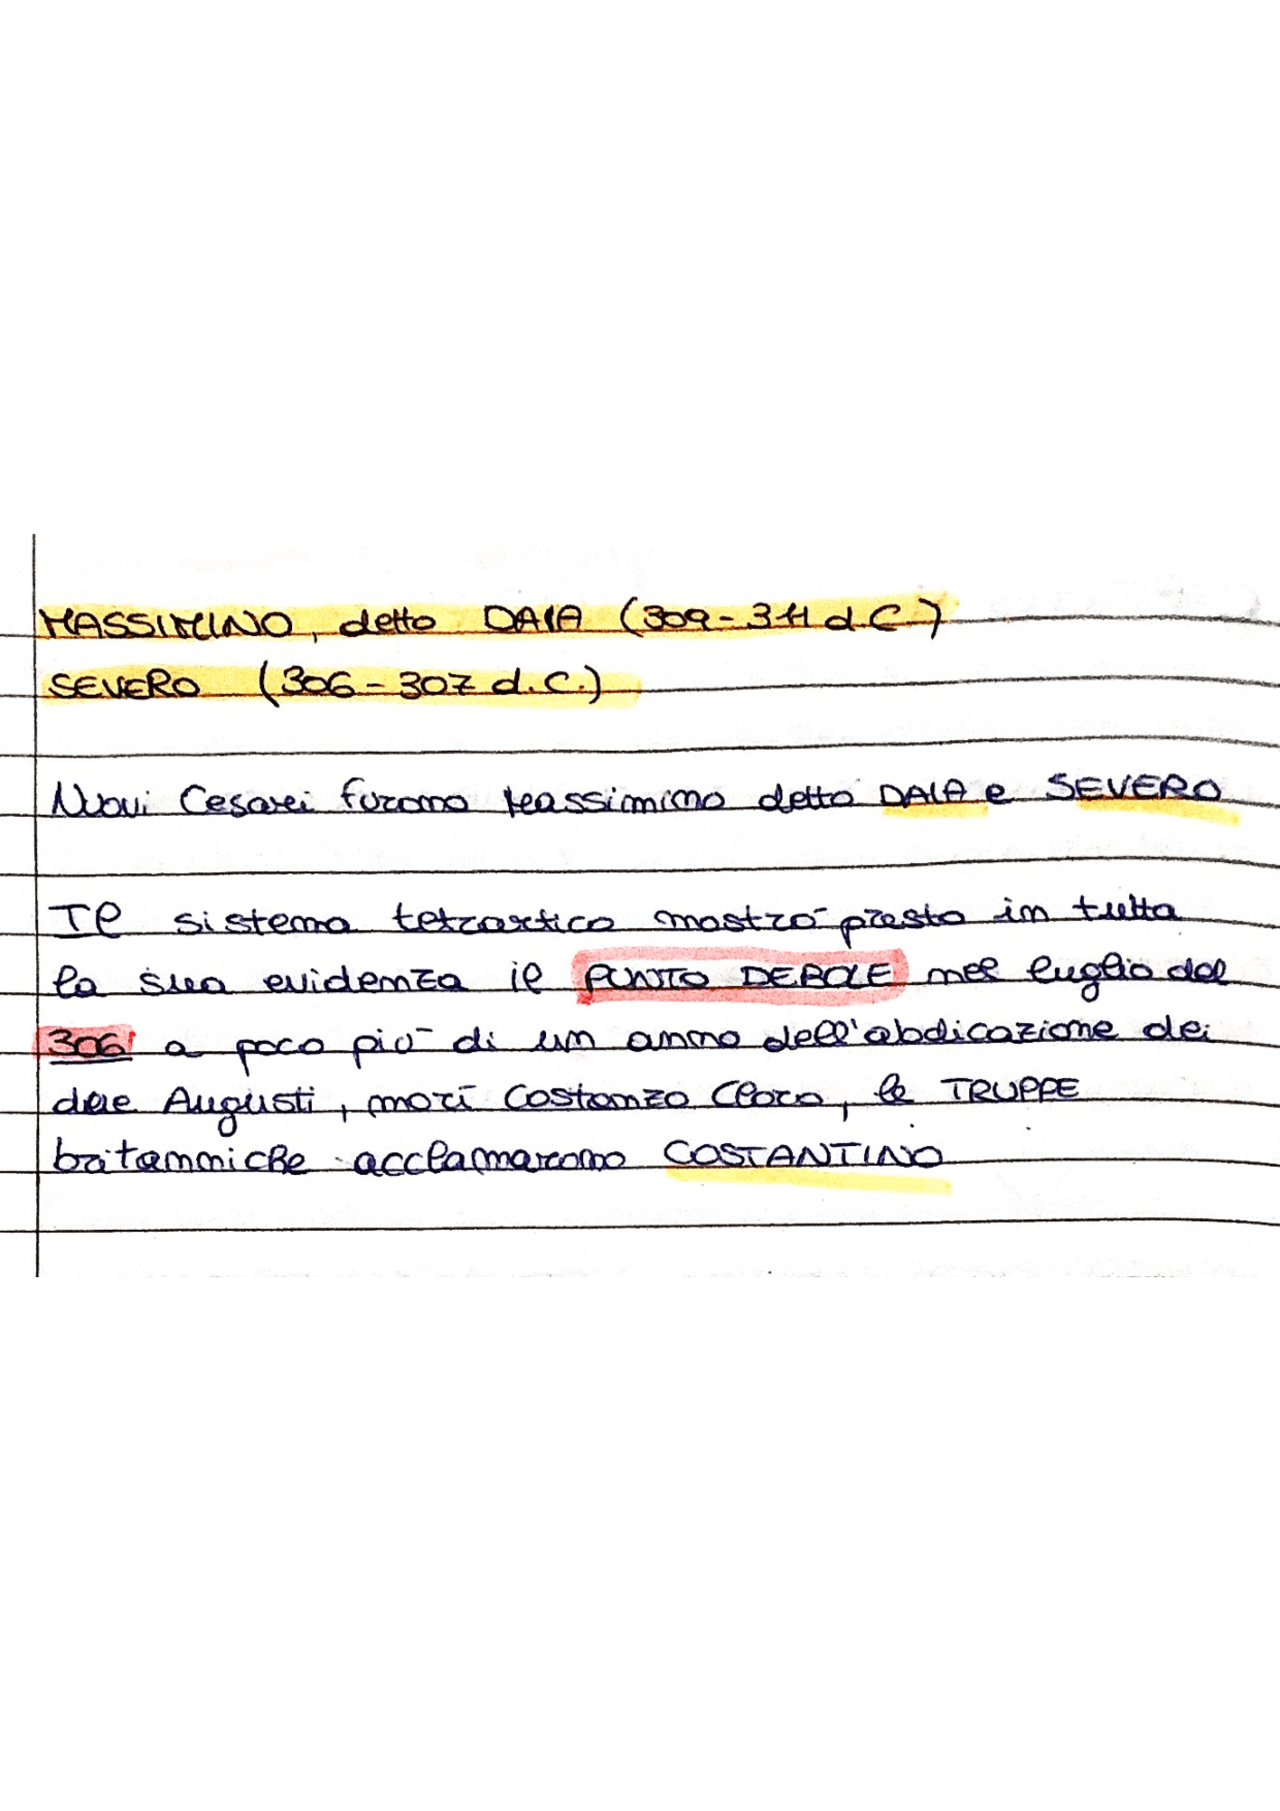 MASSIMINO, detto DAIA (309-311 d.C.)
SEVERO (306-307 d.C.)
Nuovi Cesarei furono Massimino detto DAIA e SEVERO
Il sistema tetrartico mostrò presto in tutta
la sua evidenza il PUNTO DEBOLE nel luglio del
306 a poco più di un anno dell'abdicazione dei
due Augusti, morì Costanzo Cloro, le TRUPPE
britanniche acclamarono COSTANTINO